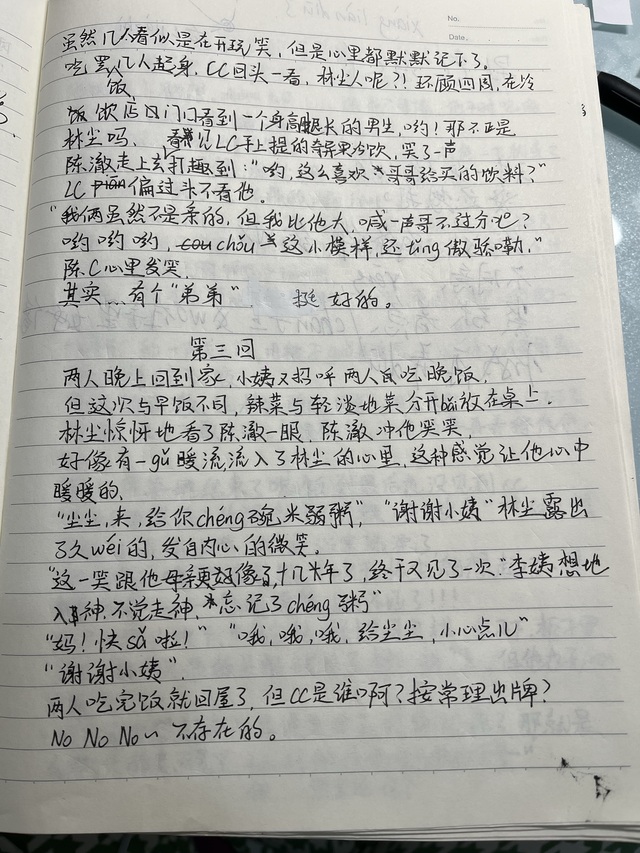 No.
Date.
虽然几人看似是在开玩笑，但是心里都默默记下了。
吃罢几人起身，CC回头一看，林尘人呢？！环顾四周，在冷
饭
饮店门口看到一个身高腿长的男生，哟！那不正是
林尘吗，看见LC手上提的奇异果冷饮，笑了一声
陈澈走上去打趣到："哟，这么喜欢哥哥给买的饮料？"
LC偏过头不看他。
"我俩虽然不是亲的，但我比他大，喊一声哥不过分吧？
哟哟哟，chǒu这小模样，还tǐng傲骄嘞。"
陈C心里发笑。
其实…有个"弟弟" 挺好的。
第三回
两人晚上回到家，小姨又招呼两人吃晚饭，
但这次与早饭不同，辣菜与轻淡地菜分开bǎi放在桌上。
林尘惊怀地看了陈澈一眼，陈澈冲他笑笑，
好像有一gǔ暖流流入了林尘的心里，这种感觉让他心中
暖暖的，
"尘尘，来，给你chéng碗米弱粥"，"谢谢小姨"林尘露出
了久wéi的，发自内心的微笑。
"这一笑跟他母亲好像了，十几年了，终于又见了一次"李姨想地
入神，不觉走神，忘记了chéng粥"
"妈！快sǎ啦！" "哦，哦，哦，给尘尘，小心点儿"
"谢谢小姨"，
两人吃完饭就回屋了，但CC是谁啊？按常理出牌？
No No No~ 不存在的。